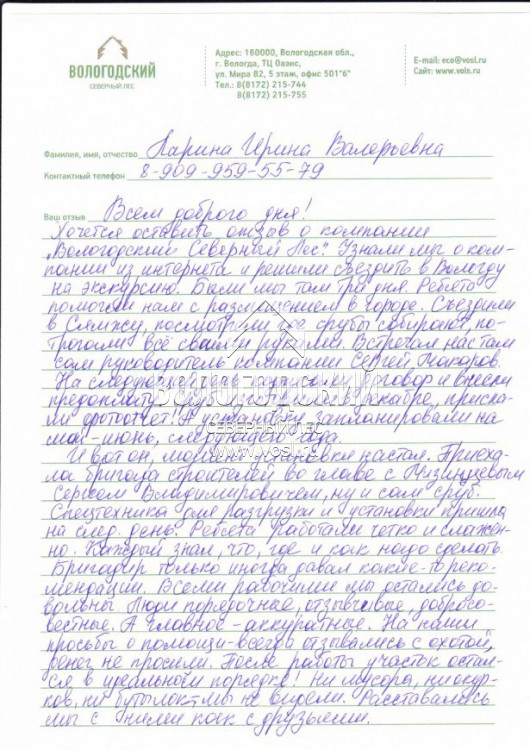 ВОЛОГОДСКИЙ
СЕВЕРНЫЙ ЛЕС
Адрес: 160000, Вологодская обл.,
г. Вологда, ТЦ Оазис,
ул. Мира 82, 5 этаж, офис 501"6"
Тел.: 8(8172) 215-744
8(8172) 215-755
E-mail: eco@vosl.ru
Сайт: www.volo.ru
Фамилия, имя, отчество Ларина Ирина Валерьевна
Контактный телефон 8-909-959-55-79
Ваш отзыв Всем доброго дня!
Хочется оставить отзыв о компании
"Вологодский Северный Лес". Узнали мы о ком-
пании из интернета и решили съездить в Вологду
на экскурсию. Были мы там три дня. Ребята
помогали нам с размещением в городе. Съездили
в Сямжу, посмотрели где срубы собирают, по-
трогали всё своими руками. Встречал нас там
сам руководитель компании Сергей Макаров.
На следующий день подписали договор и внесли
предоплату. Сруб изготовили в декабре, присла-
ли фотоотчет! А установку запланировали на
май-июнь, следующего года.
И вот он, момент установки настал. Приеха-
ла бригада строителей во главе с Мизинцевым
Сергеем Владимировичем, ну и сам сруб.
Спецтехника для разгрузки и установки пришла
на след. день. Ребята работали четко и слажен-
но. Каждый знал, что, где и как надо сделать.
Бригадир только иногда давал какие-то реко-
мендации. Всеми рабочими мы остались до-
вольны. Люди порядочные, отзывчивые, добросо-
вестные. А главное - аккуратные. На наши
просьбы о помощи - всегда отзывались с охотой,
денег не просили. После работы участок остал-
ся в идеальном порядке! Ни мусора, ни окур-
ков, ни бутылок - мы не видели. Расставались
мы с ними как с друзьями.
ВОЛОГОДСКИЙ
СЕВЕРНЫЙ ЛЕС
www.vosl.ru